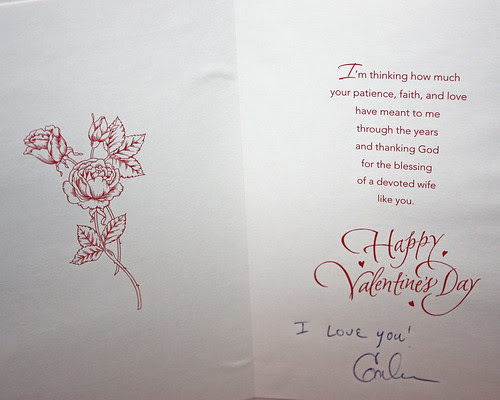 I'm thinking how much
your patience, faith, and love
have meant to me
through the years
and thanking God
for the blessing
of a devoted wife
like you.
Happy
Valentine's Day
I Love you!